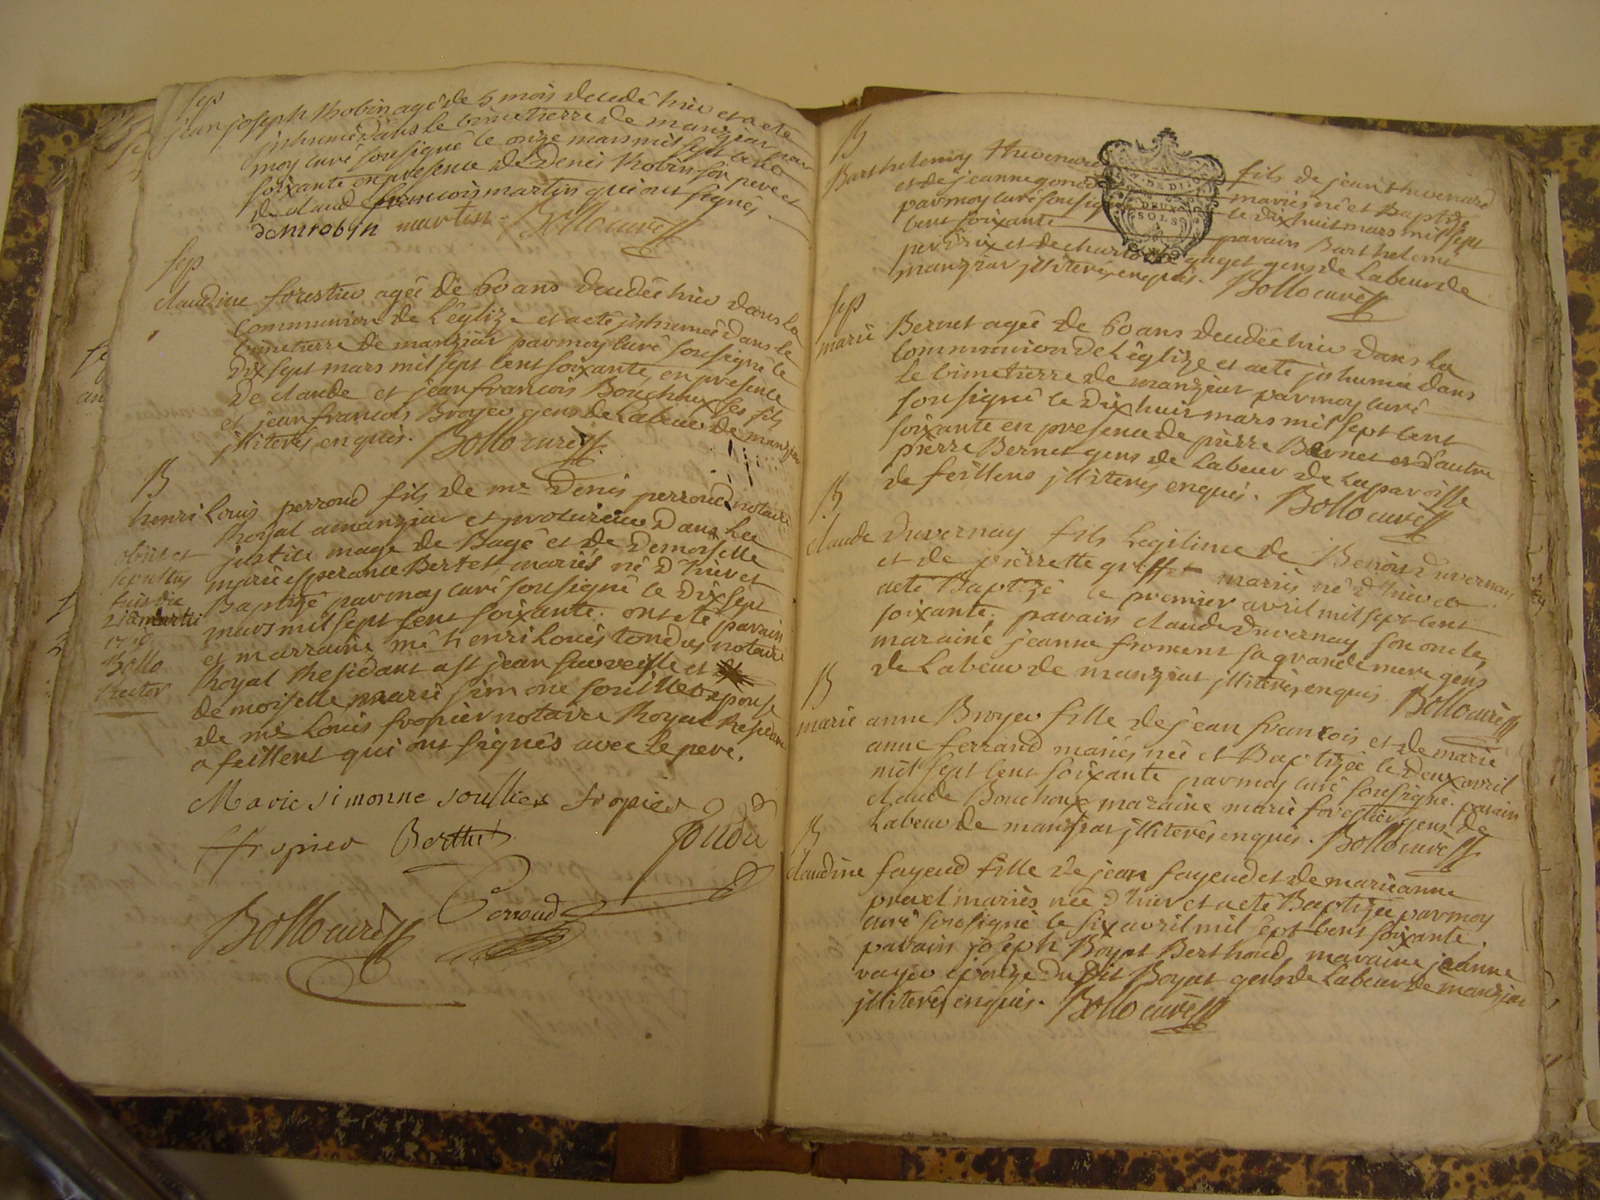 Sep
jean joseph Robin agé de 5 mois decedé hier et a eté
jnhumé dans le cimetierre de manziat par
moy curé sousigné le onze mars mil sept cent
soixante en presence de Denis Robin son pere et
de claud francois martin qui ont signés.
deni robin martin Bollo curé
Sep
claudine forestier agée de 60 ans decedée hier dans la
Communion de L'églize et a eté jnhumée dans le
cimetierre de manziat par moy curé sousigné le
dix sept mars mil sept cent soixante, en presence
de claude et jean francois Bouchoux ses fils
et jean francois Broyer gens de Labeur de manziat
jlliterés enquis. Bollo curé
B
henri Louis perroud fils de me Denis perroud notaire
Royal a manziat et procureur dans la
justice mage de Bagé et de Demoiselle
marie esperance Bertet mariés né d'hier et
Baptizé par moy curé sousigné le dix sept
mars mil sept cent soixante. ont eté parain
et marraine me henri Louis tondu notaire
Royal Residant a st jean sur veisle et
demoiselle marie simone soullier epouse
de me Louis fropier notaire Royal Resident
a feillens qui ont signés avec le pere.
obiit et
sepultus
Bollo
Rector
Marie simonne soullier fropier
fropier Berthet tondu
Bollo curé Perroud
B
Barthelemy thevenard fils de jean thevenard
et de jeanne mariés né et Baptizé
par moy curé sousigné le dix huit mars mil sept
cent soixante parain Barthelemi
perdrix et de charlotte guyet gens de Labeur de
manziat jlliterés enquis. Bollo curé
Sep
marie Bernet agée de 60 ans decedée hier dans la
Communion de L'églize et a eté jnhumée dans
le cimetierre de manziat par moy curé
sousigné le dix huit mars mil sept cent
soixante en presence de pierre Bernet et d'autre
pierre Bernet gens de Labeur de la paroisse
de feillens jlliterés enquis. Bollo curé
B
claude Duvernay fils Legitime de Benoit Duvernay
et de pierrette griffet mariés né d'hier et
a eté Baptizé le premier avril mil sept cent
soixante. parain claude Duvernay son oncle,
maraine jeanne froment sa grande mere gens
de Labeur de manziat jlliterés enquis. Bollo curé
B
marie anne Broyer fille de jean francois et de marie
anne ferrand mariés, née et Baptizée le deux avril
mil sept cent soixante par moy curé sousigné. parain
claude Bouchoux maraine marie forestier gens de
Labeur de manziat jlliterés enquis. Bollo curé
B
claudine fayend fille de jean fayend et de marieanne
pravel mariés née d'hier et a eté Baptizée par moy
curé sousigné le six avril mil sept cent soixante.
parain joseph Boyat Berthoud, maraine jeanne
rayer epouze du dit Boyat gens de Labeur de manziat
jlliterés enquis. Bollo curé